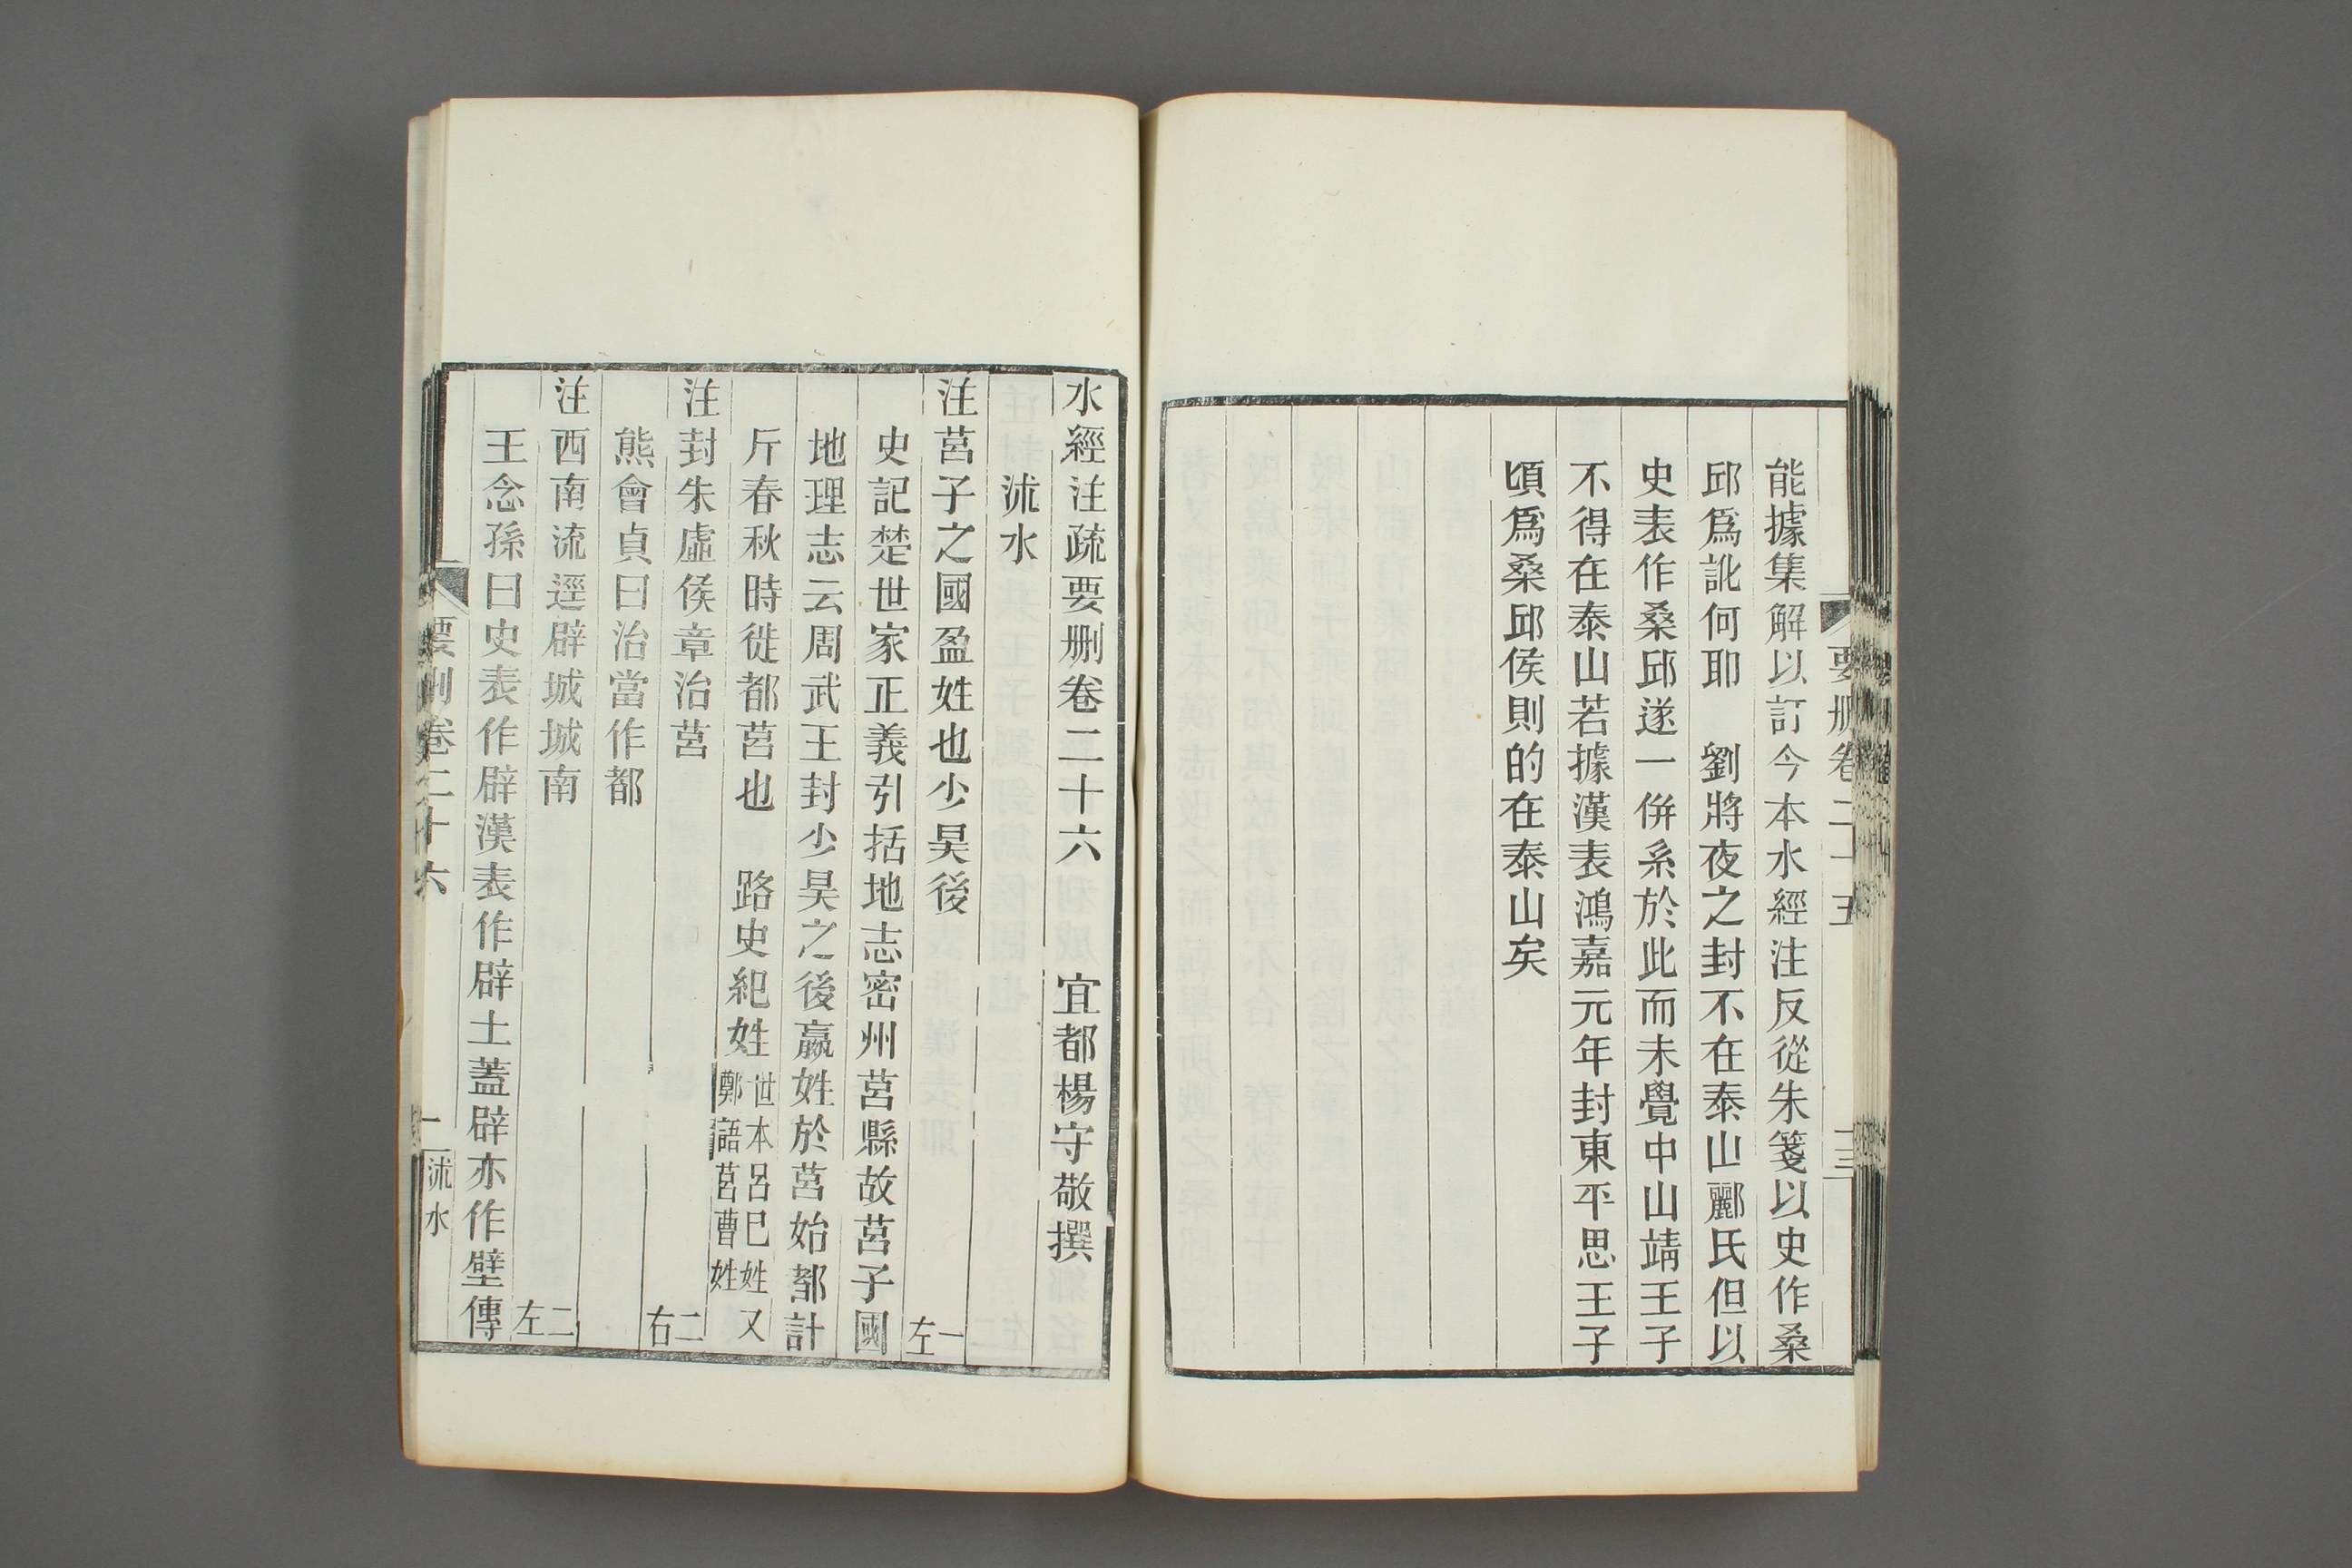 要刪卷二十五
十三
能據集解以訂今本水經注反從朱箋以史作桑
邱爲訛何耶　劉將夜之封不在泰山酈氏但以
史表作桑邱遂一併系於此而未覺中山靖王子
不得在泰山若據漢表鴻嘉元年封東平思王子
頃爲桑邱侯則的在泰山矣
水經注疏要刪卷二十六　宜都楊守敬撰
沭水
注莒子之國盈姓也少昊後　一左
史記楚世家正義引括地志密州莒縣故莒子國
地理志云周武王封少昊之後嬴姓於莒始都計
斤春秋時徙都莒也　路史紀姓世本呂巳姓又鄭語莒曹姓
注封朱虛侯章治莒　二右
熊會貞曰治當作都
注西南流逕辟城城南　二左
王念孫曰史表作辟漢表作辟土蓋辟亦作壁傳
要刪卷二十六
一
沭水